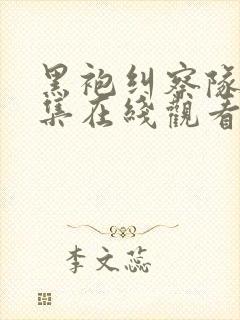 黑袍纠察隊
集在綫觀看
李文蕊